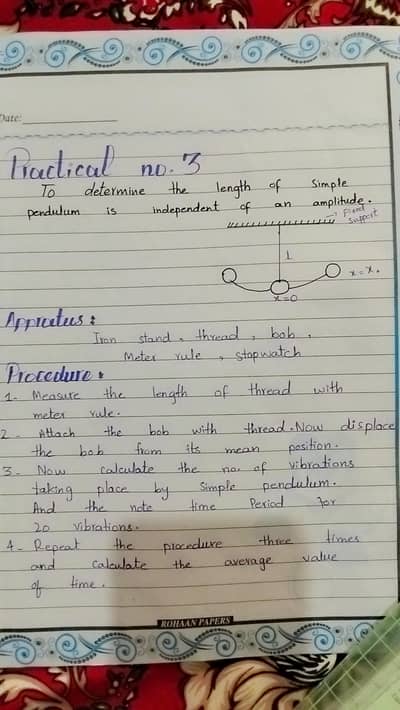 Date:
Practical no. 3
To determine the length of Simple
pendulum is independent of an amplitude.
→ Fixed
Support
l
x=x.
x=0
Appratus:
Iron stand, thread, bob,
Meter rule, stopwatch
Procedure:
1- Measure the length of thread with
meter rule.
2- Attach the bob with thread. Now displace
the bob from its mean position.
3- Now calculate the no. of vibrations
taking place by Simple pendulum.
And the note time Period for
20 vibrations.
4- Repeat the procedure three times
and calculate the average value
of time.
ROHAAN PAPERS